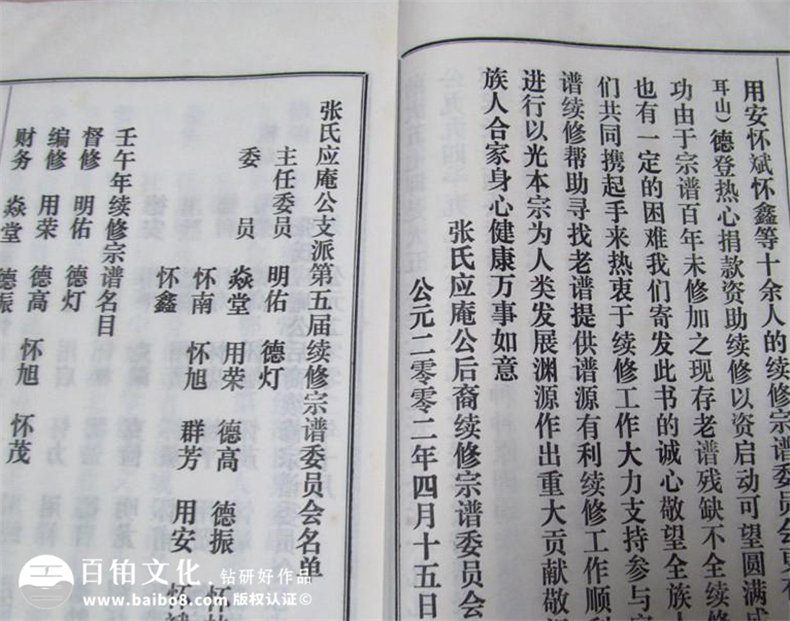 用安怀斌怀鑫等十余人的续修宗谱委员会
耳山）德登热心捐款资助续修以资启动可望圆满成
功由于宗谱百年未修加之现存老谱残缺不全续修
也有一定的困难我们寄发此书的诚心敬望全族人
们共同携起手来热衷于续修工作大力支持参与宗
谱续修帮助寻找老谱提供谱源有利续修工作顺利
进行以光本宗为人类发展渊源作出重大贡献敬祝
族人合家身心健康万事如意
张氏应庵公后裔续修宗谱委员会
公元二零零二年四月十五日
张氏应庵公支派第五届续修宗谱委员会名单
主任委员 明佑 德灯
委员 焱堂 用荣 德高 德振
怀南 怀旭 群芳 用安
怀鑫
壬午年续修宗谱名目
督修 明佑 德灯
编修 用荣 德高 怀旭 怀茂
财务 焱堂 德振
百铂文化 钻研好作品
www.baibo8.com 版权认证©